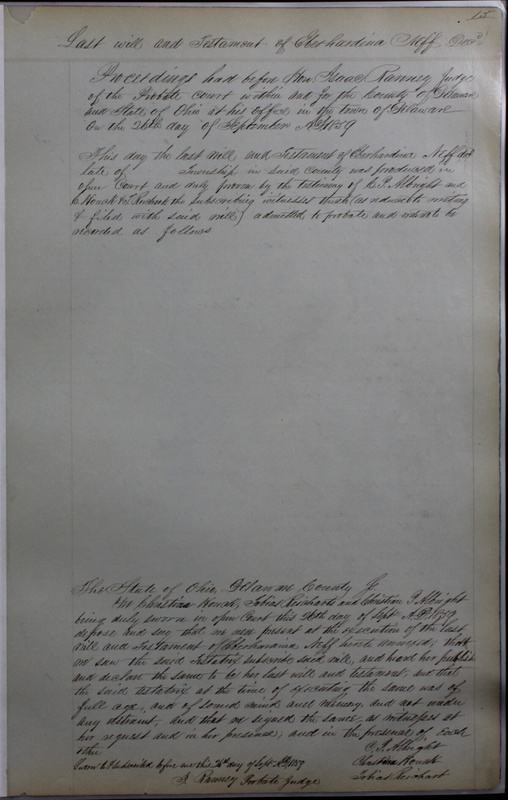 15
Last will and Testament of Eberhardina Neff Decd
Proceedings had before Hon. Isaac Ranney Judge
of the Probate Court within and for the County of Delaware
and State of Ohio at his office in the town of Delaware
On the 26th day of September AD 1859
This day the last will and Testament of Eberhardina Neff decd
late of Township in said County was produced in
open Court and duly proven by the testimony of C. F. Albright and
C Houck the subscribing witnesses (as reduced to writing
& filed with said will) admitted to probate and ordered to be
recorded as follows
The State of Ohio, Delaware County
We Christian Houck, Tobias Reinhart and Christian F Albright
being duly sworn in open Court this 26th day of Sept A.D. 1859
depose and say that we was present at the execution of the last
will and Testament of Eberhardina Neff hereto annexed, that
we saw the said Testatrix subscribe said will, and heard her publish
and declare the same to be her last will and testament, and that
the said testatrix at the time of executing the same was of
full age, and of sound mind and memory, and not under
any restraint, and that we signed the same as witnesses at
her request and in her presence, and in the presence of each
other
C. F. Albright
Sworn to & subscribed before me this 26th day of Sept AD 1859
Christian Houck
I. Ranney Probate Judge
Tobias Reinhart